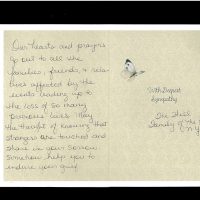 Our hearts and prayers
go out to all the
families, friends, & rela-
tives affected by the
events leading up to
the loss of so many
precious lives. May
the thought of knowing that
strangers are touched and
share in your sorrow
somehow help you to
endure your grief.
With Deepest
Sympathy
The Shell
Family